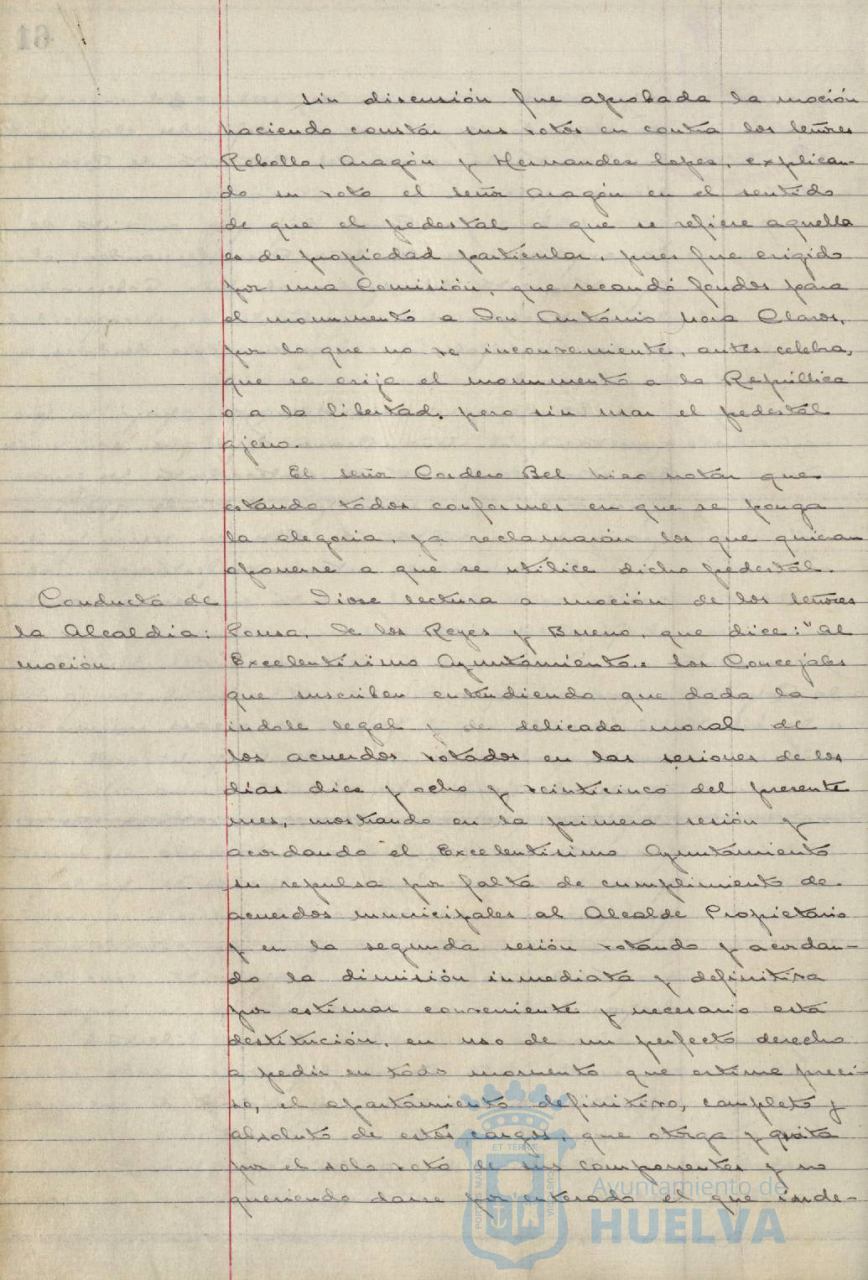 16
Sin discusión fue aprobada la moción
haciendo constar sus votos en contra los señores
Rebollo, Aragón y Hernandez Lopez, explican-
do su voto el señor Aragón en el sentido
de que el pedestal a que se refiere aquella
es de propiedad particular, pues fue erigido
por una Comisión, que recaudó fondos para
el monumento a Don Antonio Mora Claros,
por lo que no ve inconveniente, antes celebra,
que se erija el monumento a la República
o a la libertad, pero sin usar el pedestal
ajeno.
El señor Cordero Bel hizo notar que
estando todos conformes en que se ponga
la alegoria, ya reclamarán los que quieran
oponerse a que se utilice dicho pedestal.
Conducta de
la Alcaldia:
moción.
Diose lectura a moción de los señores
Pousa, de los Reyes y Bueno, que dice: "Al
Excelentísimo Ayuntamiento.. Los Concejales
que suscriben entendiendo que dada la
indole legal y de delicada moral de
los acuerdos votados en las sesiones de los
días diez y ocho y veinticinco del presente
mes, mostrando en la primera sesión y
acordando el Excelentísimo Ayuntamiento
su repulsa por falta de cumplimiento de
acuerdos municipales al Alcalde Propietario
y en la segunda sesión votando y acordan-
do la dimisión inmediata y definitiva
por estimar conveniente y necesario esta
destitución, en uso de un perfecto derecho
a pedir en todo momento que estime preci-
so, el apartamiento definitivo, completo y
absoluto de estos cargos, que otorga y quita
por el solo voto de sus componentes y no
queriendo darse por enterado el que inde-
Ayuntamiento de
HUELVA